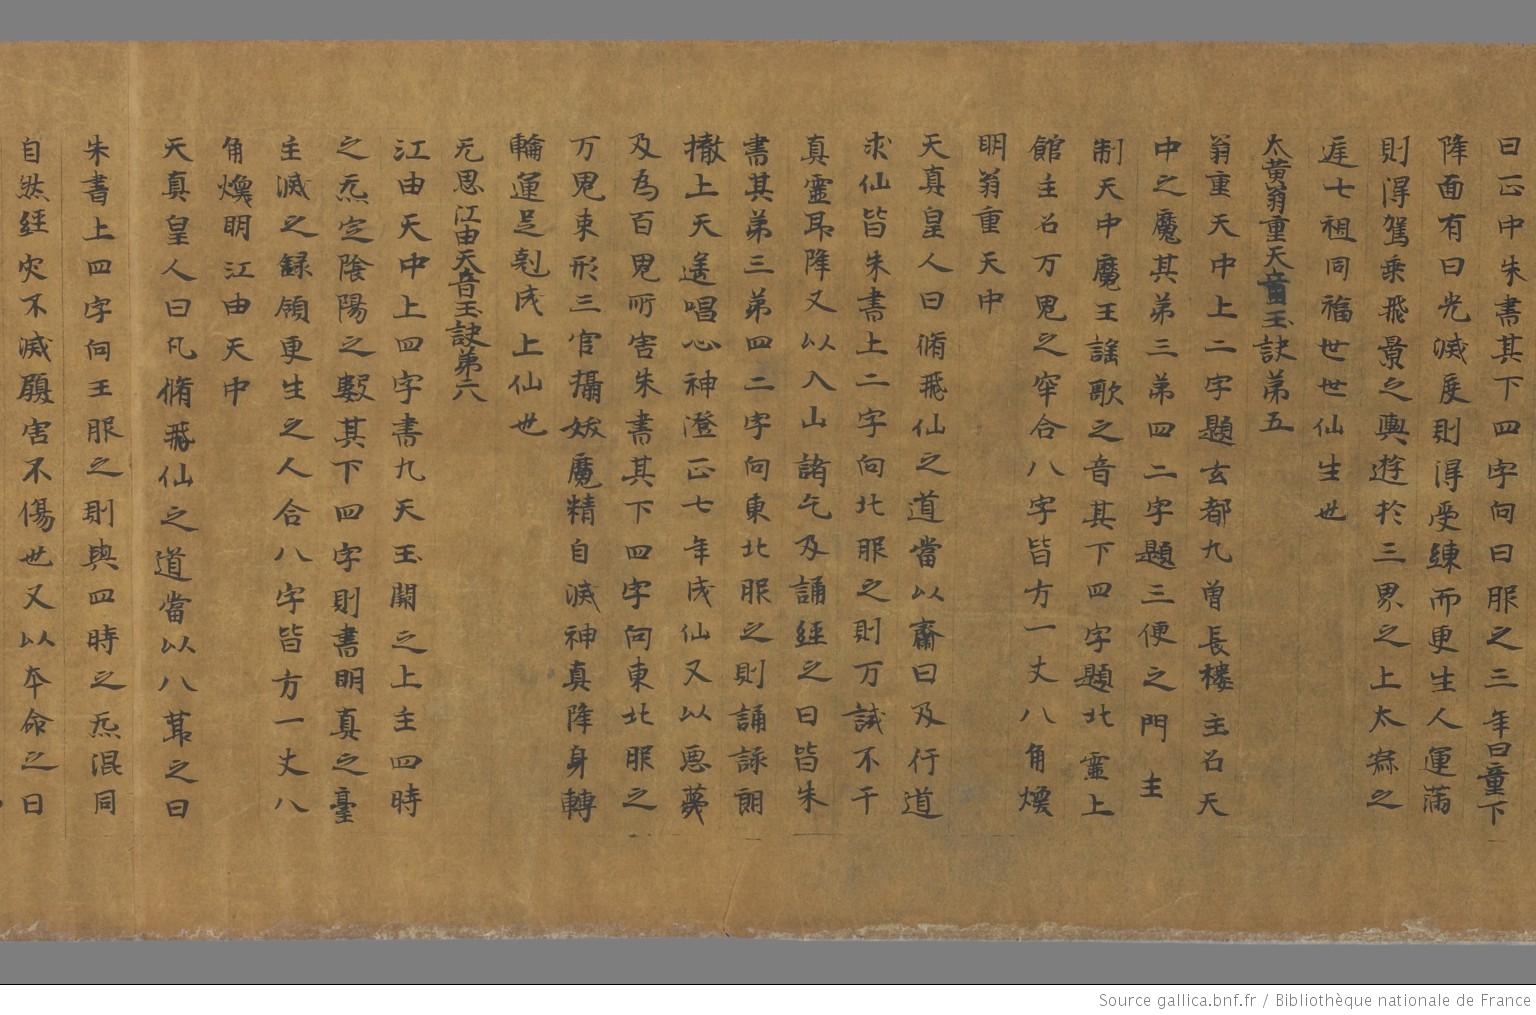 日正中朱書其下四字向日服之三年日童下
降面有日光滅度則得受練而更生人運滿
則得駕乘飛景之輿遊於三界之上太寡之
庭七祖同福世世仙生也
太黃翁重天音玉訣第五
翁重天中上二字題玄都九曽長樓主召天
中之魔其第三第四二字題三便之門主
制天中魔王謠歌之音其下四字題北靈上
館主召万鬼之宰合八字皆方一丈八角煥
明翁重天中
天真皇人曰脩飛仙之道當以齋日及行道
求仙皆朱書上二字向北服之則万試不干
真靈耳降又以入山諸乞及誦經之日皆朱
書其第三第四二字向東北服之則誦詠朗
撤上天遙唱心神澄正七年成仙又以惡夢
及為百鬼所害朱書其下四字向東北服之
万鬼束形三官攝妭魔精自滅神真降身轉
輪運足剋成上仙也
无思江由天音玉訣第六
江由天中上四字書九天玉關之上主四時
之炁定陰陽之數其下四字則書明真之臺
主滅之録領更生之人合八字皆方一丈八
角煥明江由天中
天真皇人曰凡脩飛仙之道當以八莭之日
朱書上四字向王服之則與四時之炁混同
自然經灾不滅履害不傷也又以本命之日
Source gallica.bnf.fr / Bibliothèque nationale de France